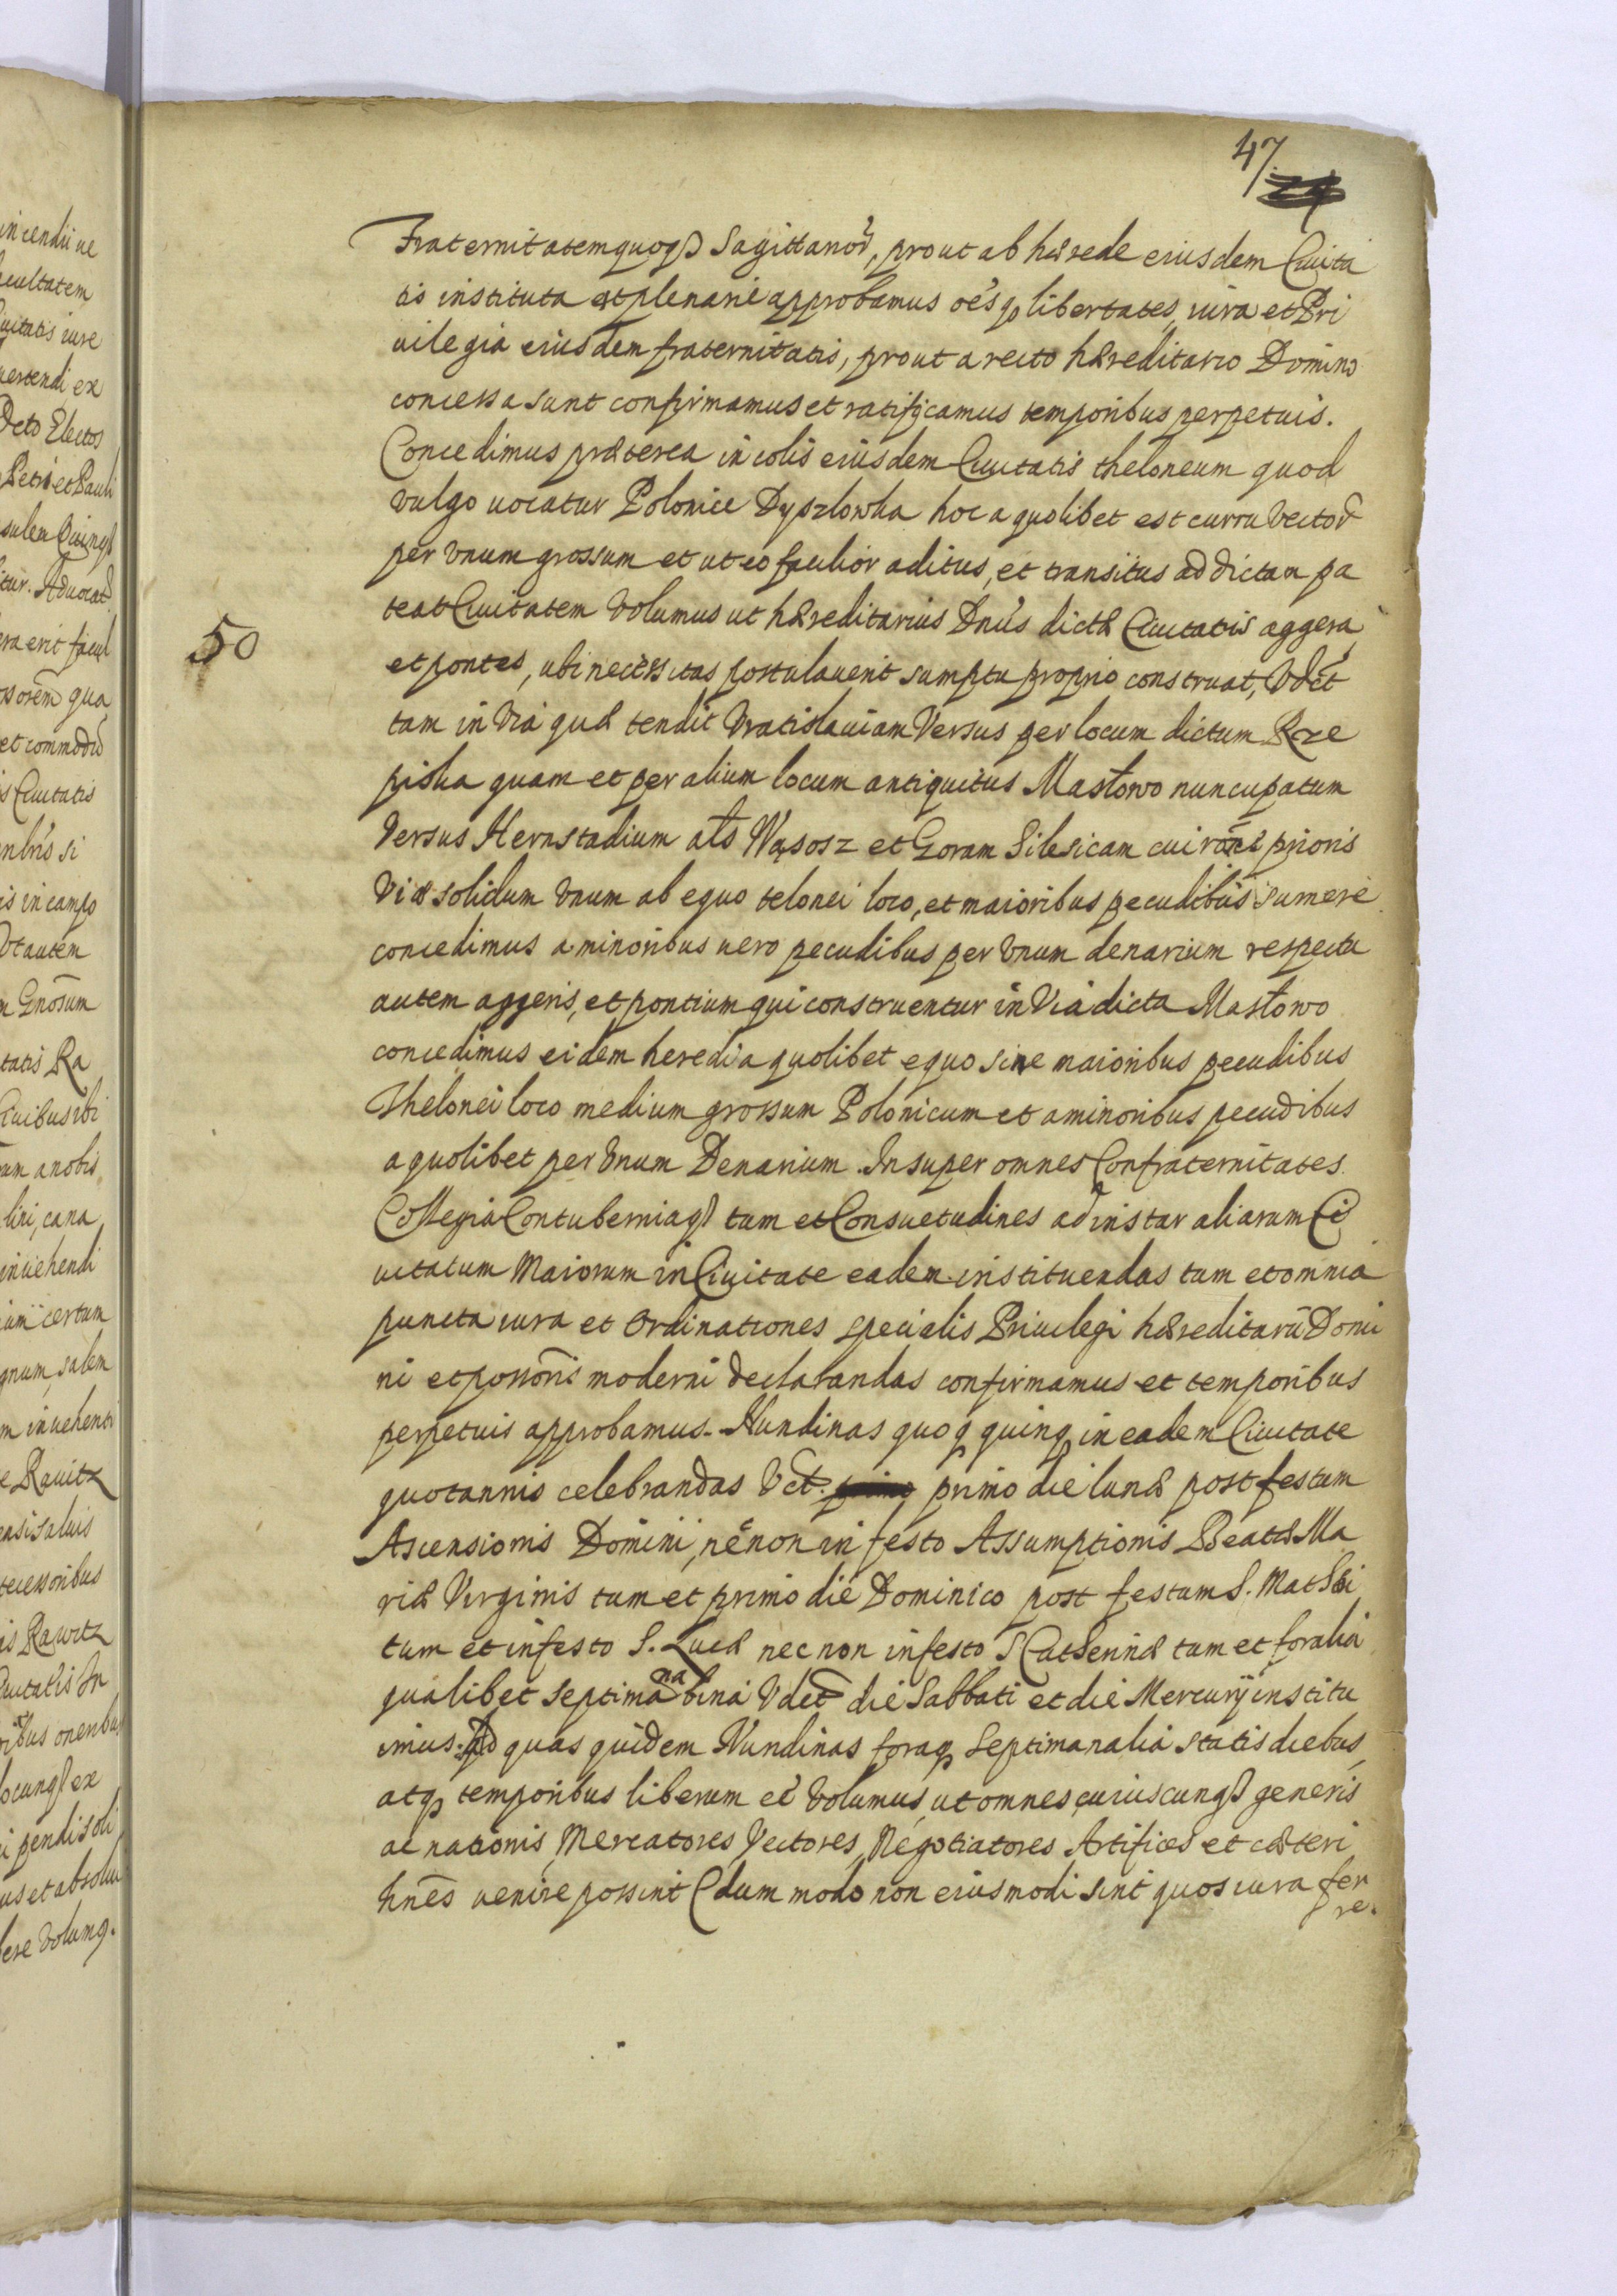 47.
Fraternitatemquoqȝ Sagittanor̃, prout ab hærede eiusdem Ciuita
tis instituta est plenarie approbamus oẽs qȝ libertates, iura et Pri
uilegia eiusdem fraternitatis, prout a recto hæreditario Domino
concessa sunt confirmamus et ratificamus temporibus perpetuis.
Concedimus præterea incolis eiusdem Ciuitatis theloneum quod
vulgo uocatur Polonice Dyszlowka hoc a quolibet est curru vector̃
per vnum grossum et ut eo facilior aditus, et transitus ad dictam pa
teat Ciuitatem volumus ut hæreditarius Dnũs dictæ Ciuitatis aggera
50
et pontes, ubi necessitas postulauerit sumptu proprio construat, Vdẽt
tam in via quæ tendit Vratislauiam versus per locum dictum Rze
piska quam et per alium locum antiquitus Masłowo nuncupatum
versus Hernstadium als Wąsosz et Goram Silesicam cui rõne prioris
viæ solidum vnum ab equo telonei loco, et maioribus pecudibus sumere
concedimus a minoribus uero pecudibus per vnum denarium respectu
autem aggeris, et pontium qui construentur in via dicta Masłowo
concedimus eidem heredi a quolibet equo sive maioribus pecudibus
Thelonei loco medium grossum Polonicum et a minoribus pecudibus
a quolibet per vnum Denarium. Insuper omnes Confraternitates
Collegia Contuberniaqȝ tum et Consuetudines ad instar aliarum Ci
uitatum Maiorum in Ciuitate eadem instituendas tum et omnia
puncta iura et Ordinationes specialis Priuilegi hæreditarij Domi
ni et possoris moderni declarandas confirmamus et temporibus
perpetuis approbamus. Nundinas quoqȝ quinqȝ in eadem Ciuitate
quotannis celebrandas Vct. primo die lunæ post festum
Ascensionis Domini, nec non in festo Assumptionis Beatæ Ma
riæ Virginis tum et primo die Dominico post festum S. Mathæi
tum et in festo S. Lucæ nec non in festo S Catherinæ tum et foralia
qualibet septimana bina Vdct die Sabbati et die Mercurij institu
imus. Ad quas quidem Nundinas foraqȝ septimanalia statis diebus
atqȝ temporibus liberum eẽ volumus, ut omnes cuiuscunqȝ generis
ac nationis Mercatores Vectores, Negotiatores Artifices et cæteri
hnẽs uenire possint (dum modo non eiusmodi sint quos iura fer
re.